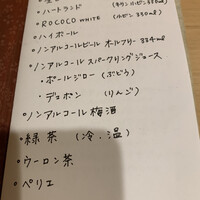 ・ハートランド (キリン小ビン 330ml)
・ROCOCO WHITE (小ビン 330ml)
・ハイボール
・ノンアルコールビール オールフリー 334ml
・ノンアルコール スパークリングジュース
・ポールジロー (ぶどう)
・デュポン (りんご)
・ノンアルコール梅酒
・緑茶 (冷、温)
・ウーロン茶
・ペリエ